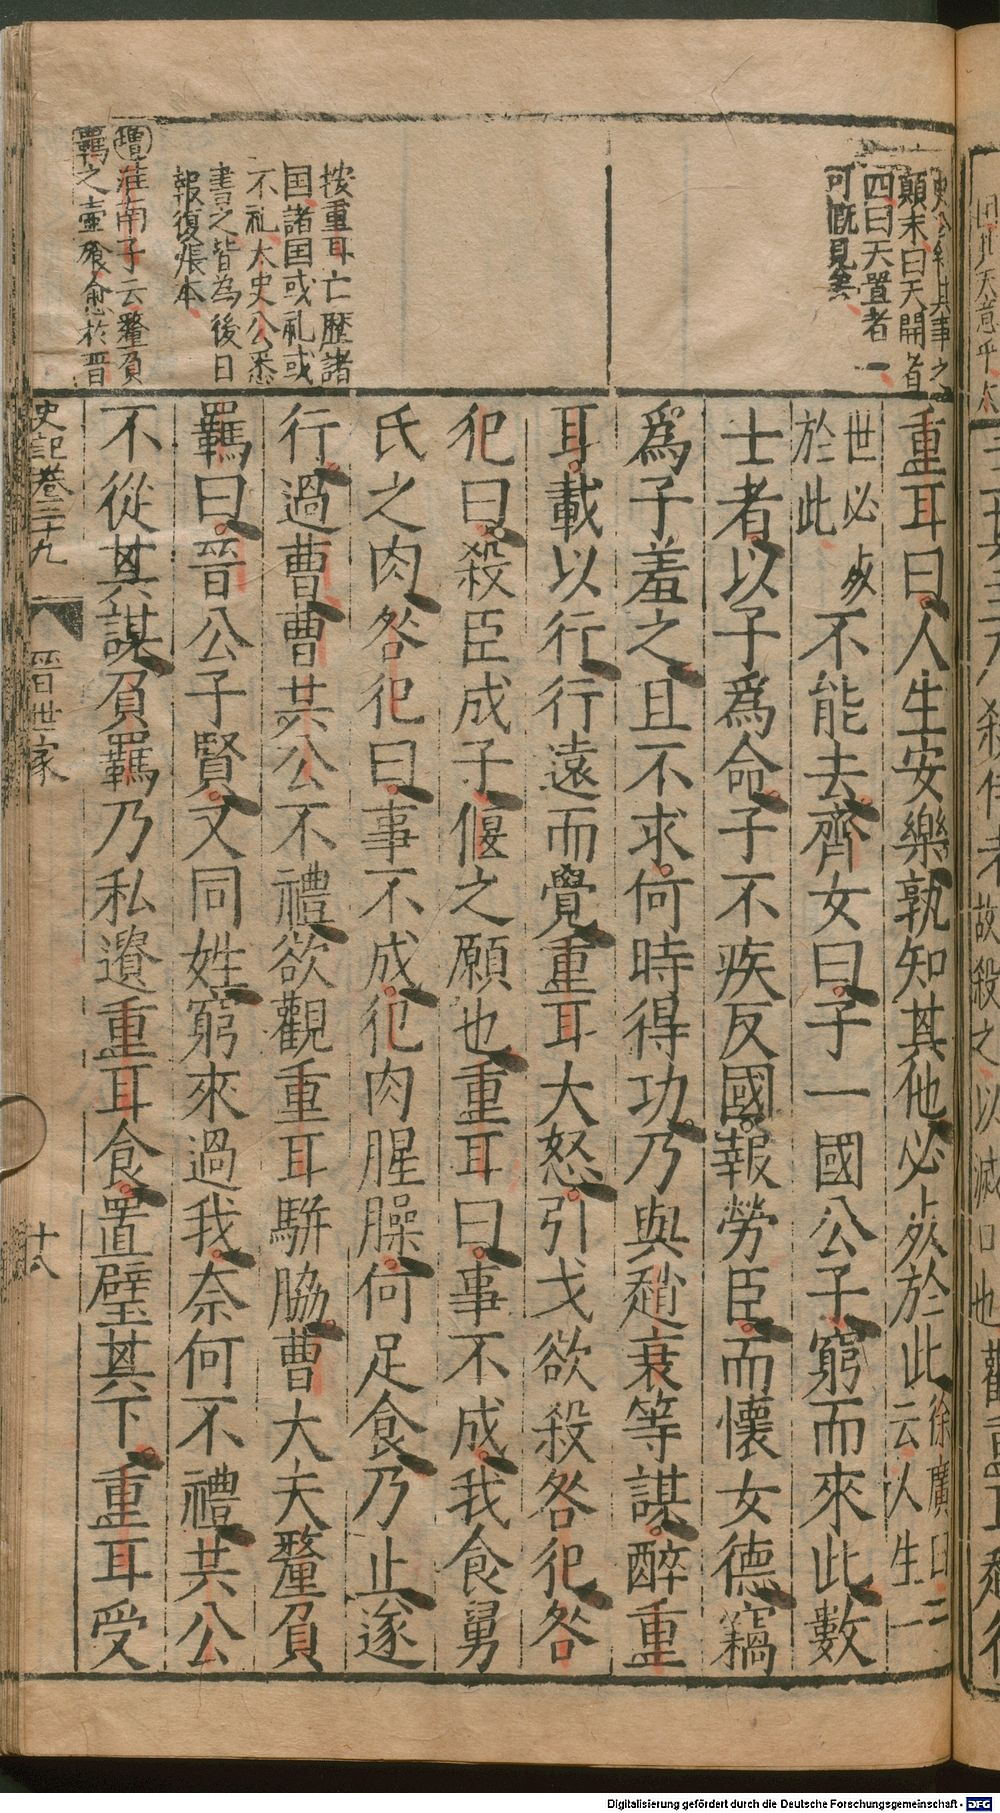 顛末曰天開者
四曰天置者一
可概見矣
按重耳亡歷諸
国諸国或礼或
不礼太史公悉
書之皆為後日
報復張本
增淮南子云釐負
羈之壺飱愈於晋
重耳曰人生安樂孰知其他必死於此徐廣曰一云人生一
世必死於此不能去齊女曰子一國公子窮而來此數
士者以子爲命子不疾反國報勞臣而懷女德竊
爲子羞之且不求何時得功乃與趙衰等謀醉重
耳載以行行遠而覺重耳大怒引戈欲殺咎犯咎
犯曰殺臣成子偃之願也重耳曰事不成我食舅
氏之肉咎犯曰事不成犯肉腥臊何足食乃止遂
行過曹曹共公不禮欲觀重耳駢脇曹大夫釐負
羈曰晉公子賢又同姓窮來過我奈何不禮共公
不從其謀負羈乃私遺重耳食置璧其下重耳受
史記卷三十九
晉世家
十八
Digitalisierung gefördert durch die Deutsche Forschungsgemeinschaft - DFG